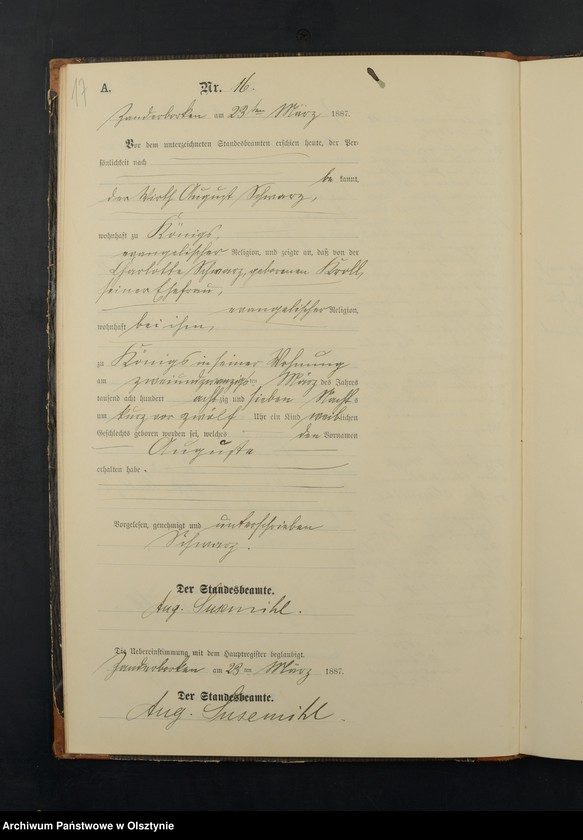 17
A. Nr. 16.
Zanderborken am 23ten März 1887.
Vor dem unterzeichneten Standesbeamten erschien heute, der Per-
sönlichkeit nach
be kannt,
der Wirth August Schwarz,
wohnhaft zu Königs,
evangelischer Religion, und zeigte an, daß von der
Charlotte Schwarz, geborenen Kroll,
seiner Ehefrau,
evangelischer Religion,
wohnhaft bei ihm,
zu Königs in seiner Wohnung
am zweiundzwanzigsten März des Jahres
tausend acht hundert achtzig und sieben Nacht
um kurz vor zwölf Uhr ein Kind weiblichen
Geschlechts geboren worden sei, welches den Vornamen
Auguste
erhalten habe.
Vorgelesen, genehmigt und unterschrieben
Schwarz.
Der Standesbeamte.
Aug. Susemihl.
Die Uebereinstimmung mit dem Hauptregister beglaubigt.
Zanderborken am 23ten März 1887.
Der Standesbeamte.
Aug. Susemihl.
Archiwum Państwowe w Olsztynie